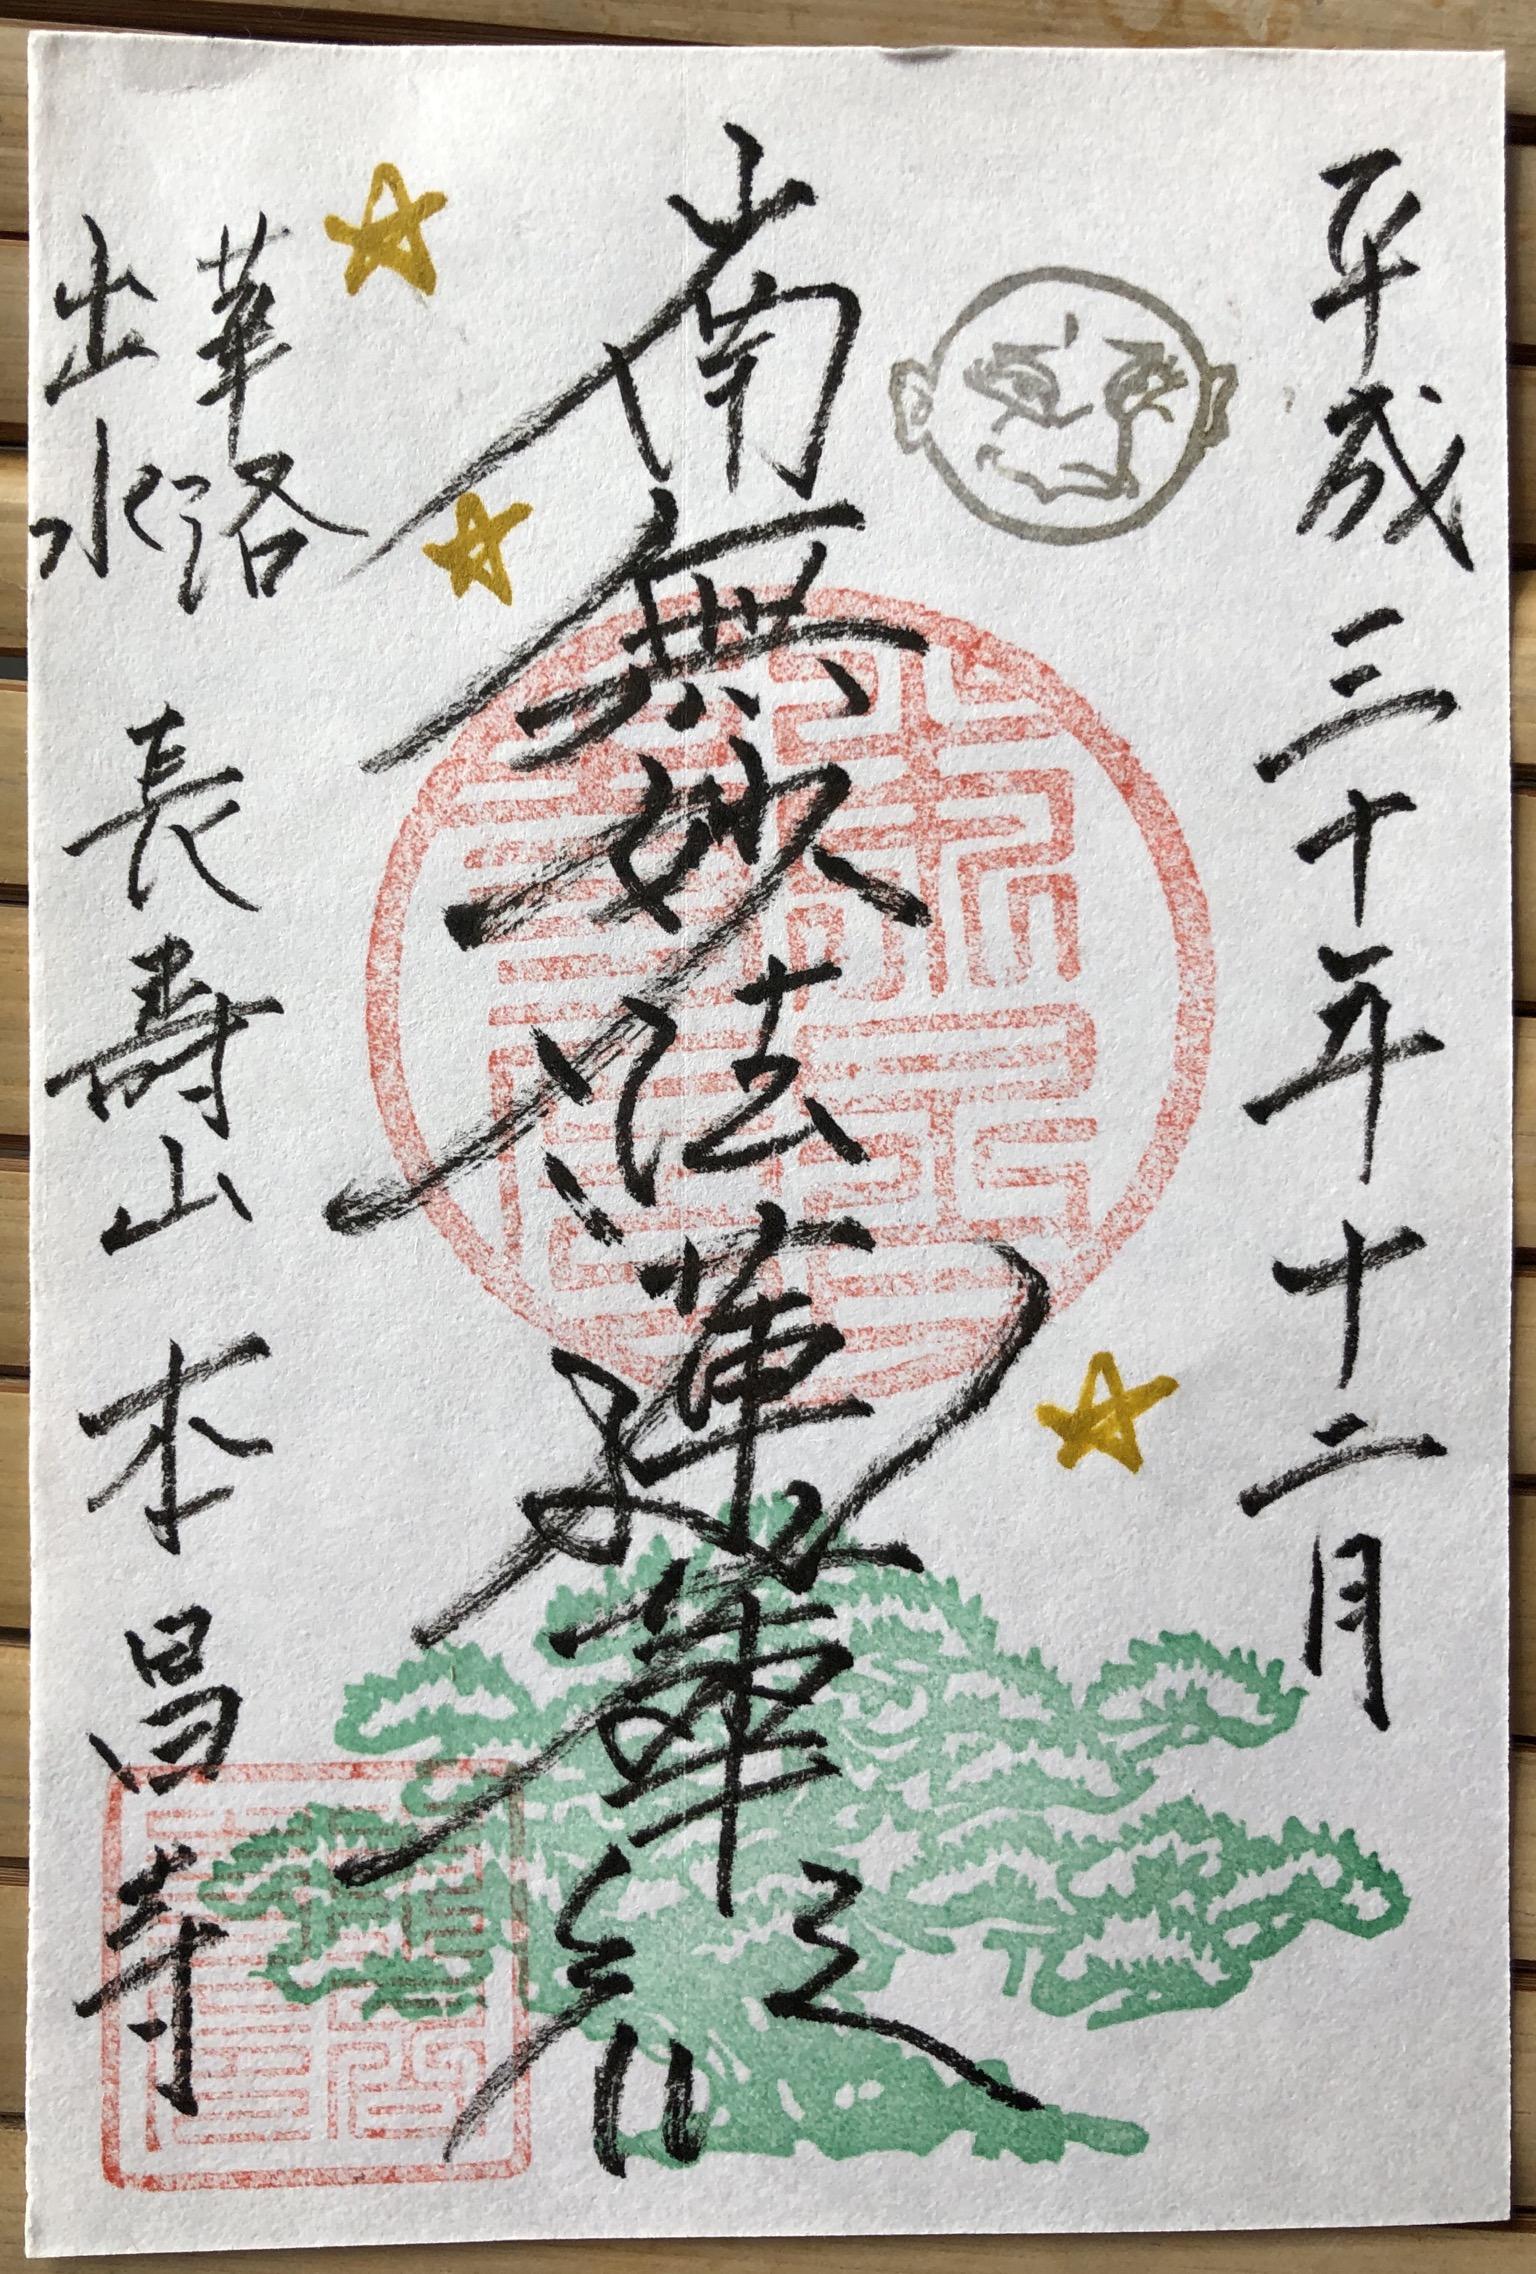 平成三十年十二月
南無妙法蓮華経
華洛
出水 長寿山 本昌寺